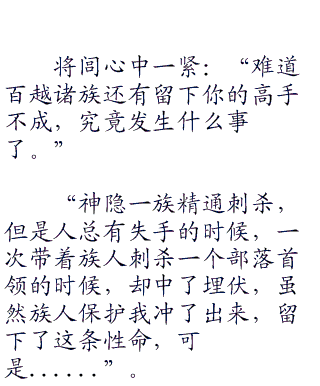 将闾心中一紧：“难道
百越诸族还有留下你的高手
不成，究竟发生什么事
了。”
“神隐一族精通刺杀，
但是人总有失手的时候，一
次带着族人刺杀一个部落首
领的时候，却中了埋伏，虽
然族人保护我冲了出来，留
下了这条性命，可
是......”。